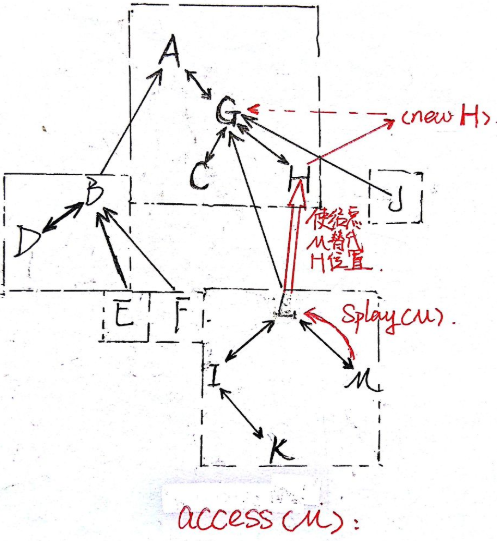 A
G
(new H).
C
H
J
B
D
使结点
M替代
H位置.
E
F
L
Splay(M).
I
M
K
access(M):